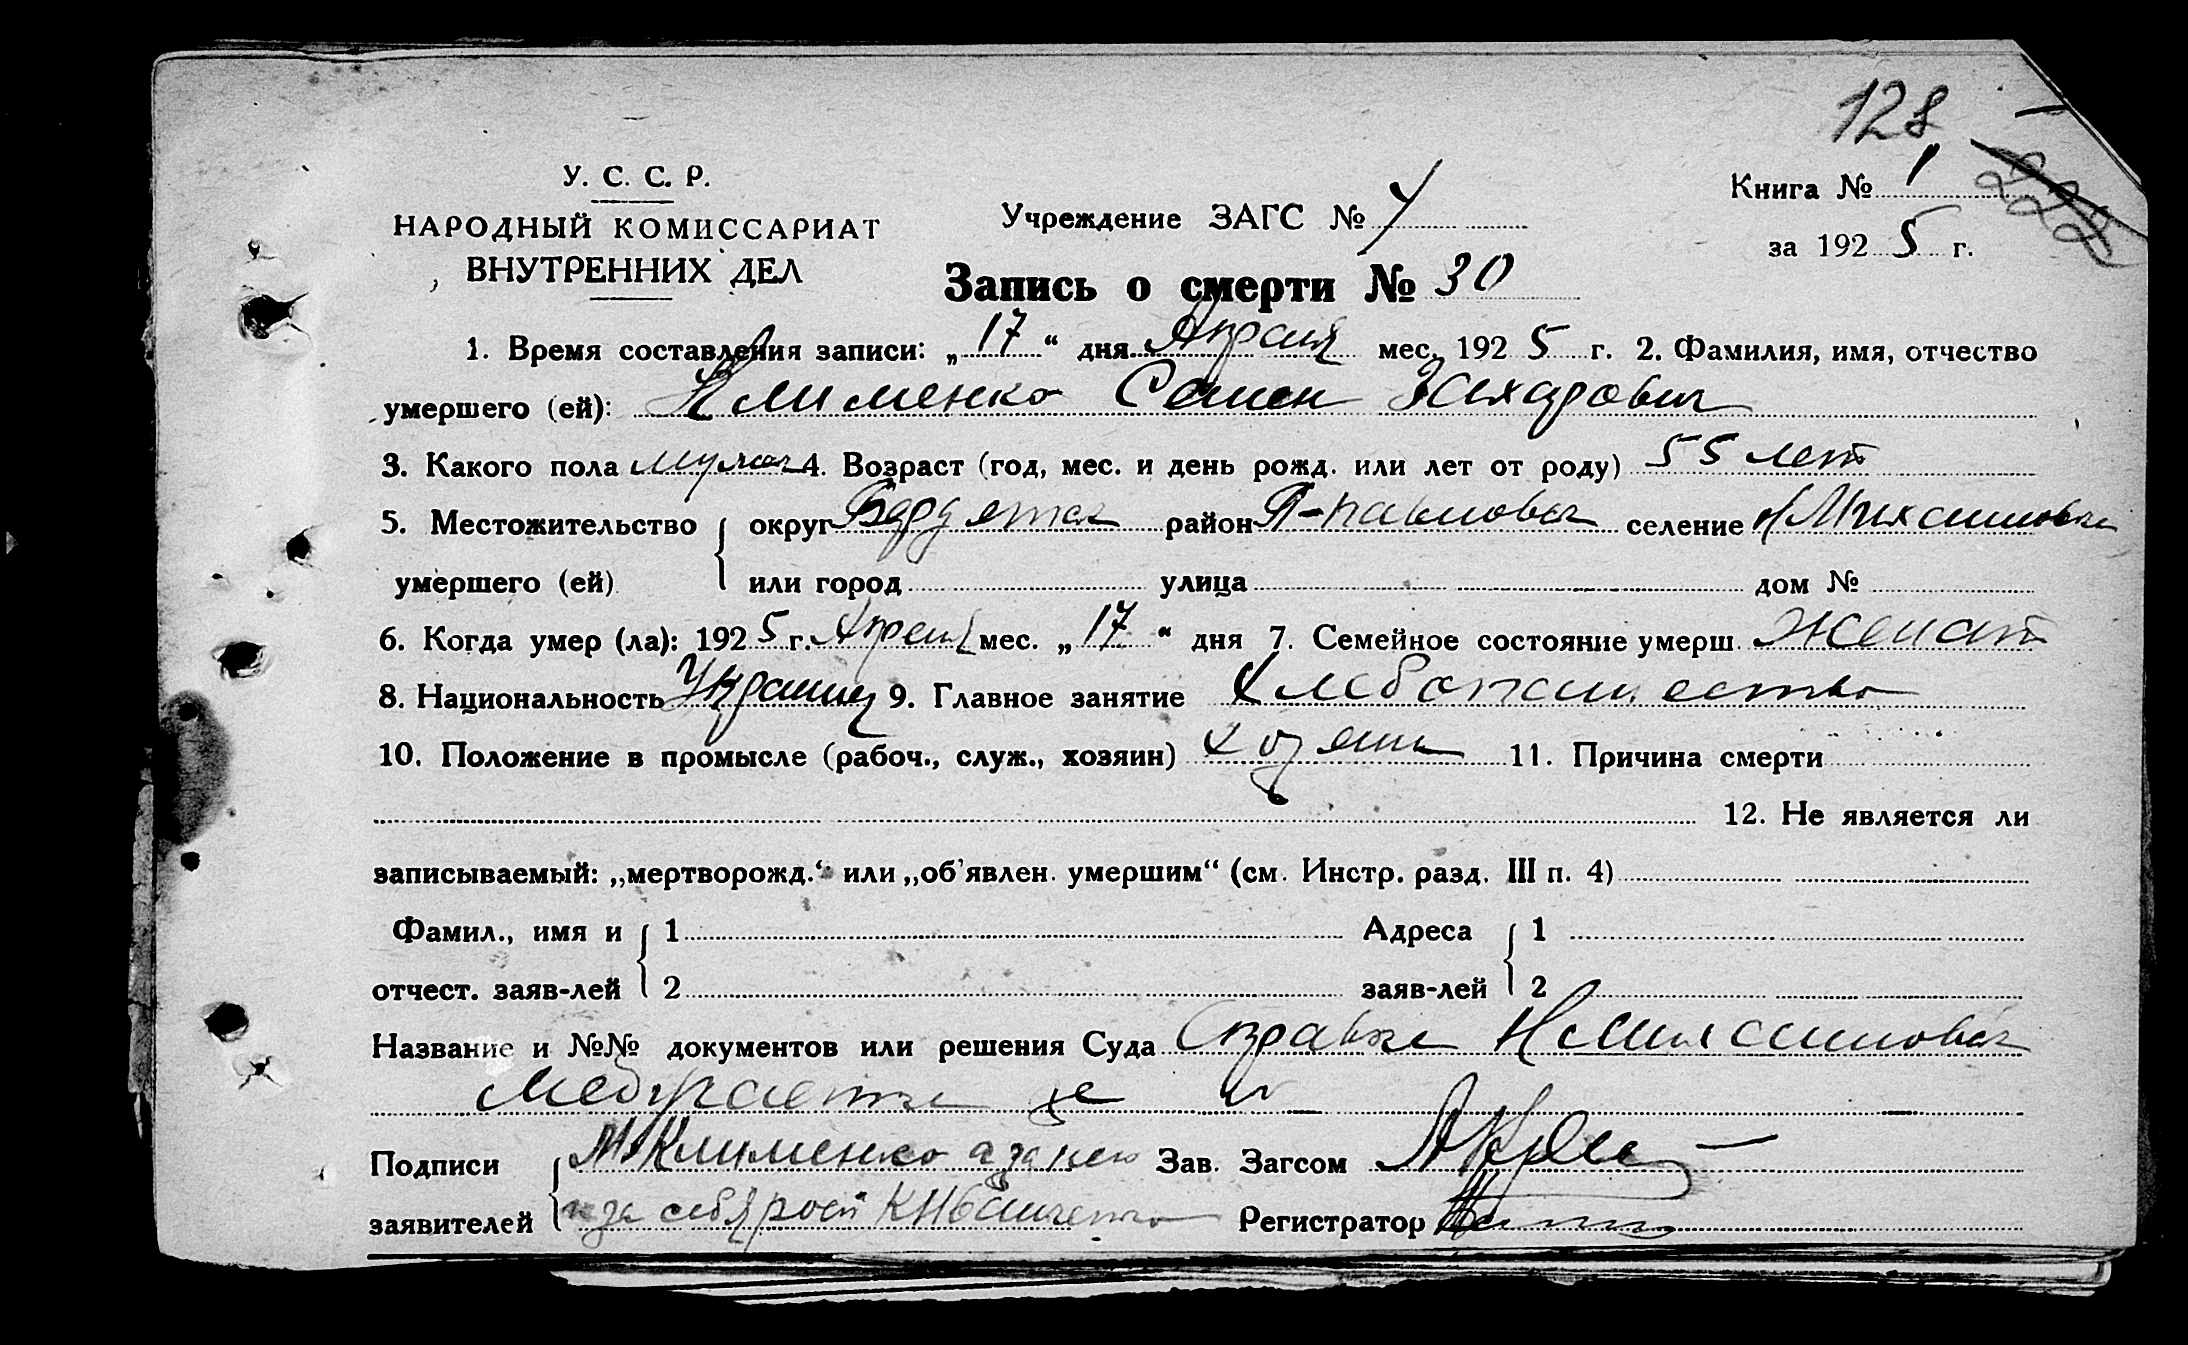 128
228
У. С. С. Р.
НАРОДНЫЙ КОМИССАРИАТ
ВНУТРЕННИХ ДЕЛ
Учреждение ЗАГС №
Книга № 1
за 1925 г.
Запись о смерти № 30
1. Время составления записи: „17“ дня Апреля мес. 1925 г. 2. Фамилия, имя, отчество
умершего (ей): Клименко Семен Захарович
3. Какого пола мужск 4. Возраст (год, мес. и день рожд. или лет от роду) 55 лет
5. Местожительство округ Бердянск район селение Н Михайловка
умершего (ей) или город улица дом №
6. Когда умер (ла): 1925 г. Апреля мес. „17“ дня 7. Семейное состояние умерш. Женат
8. Национальность Украинец 9. Главное занятие Хлебопашество
10. Положение в промысле (рабоч., служ., хозяин) хозяин 11. Причина смерти
12. Не является ли
записываемый: „мертворожд.“ или „об'явлен. умершим“ (см. Инстр. разд. III п. 4)
Фамил., имя и 1 Адреса 1
отчест. заяв-лей 2 заяв-лей 2
Название и №№ документов или решения Суда Справка Н Михайловск
Медучастка
Подписи Клименко а за него Зав. Загсом
заявителей и за себя росп Регистратор